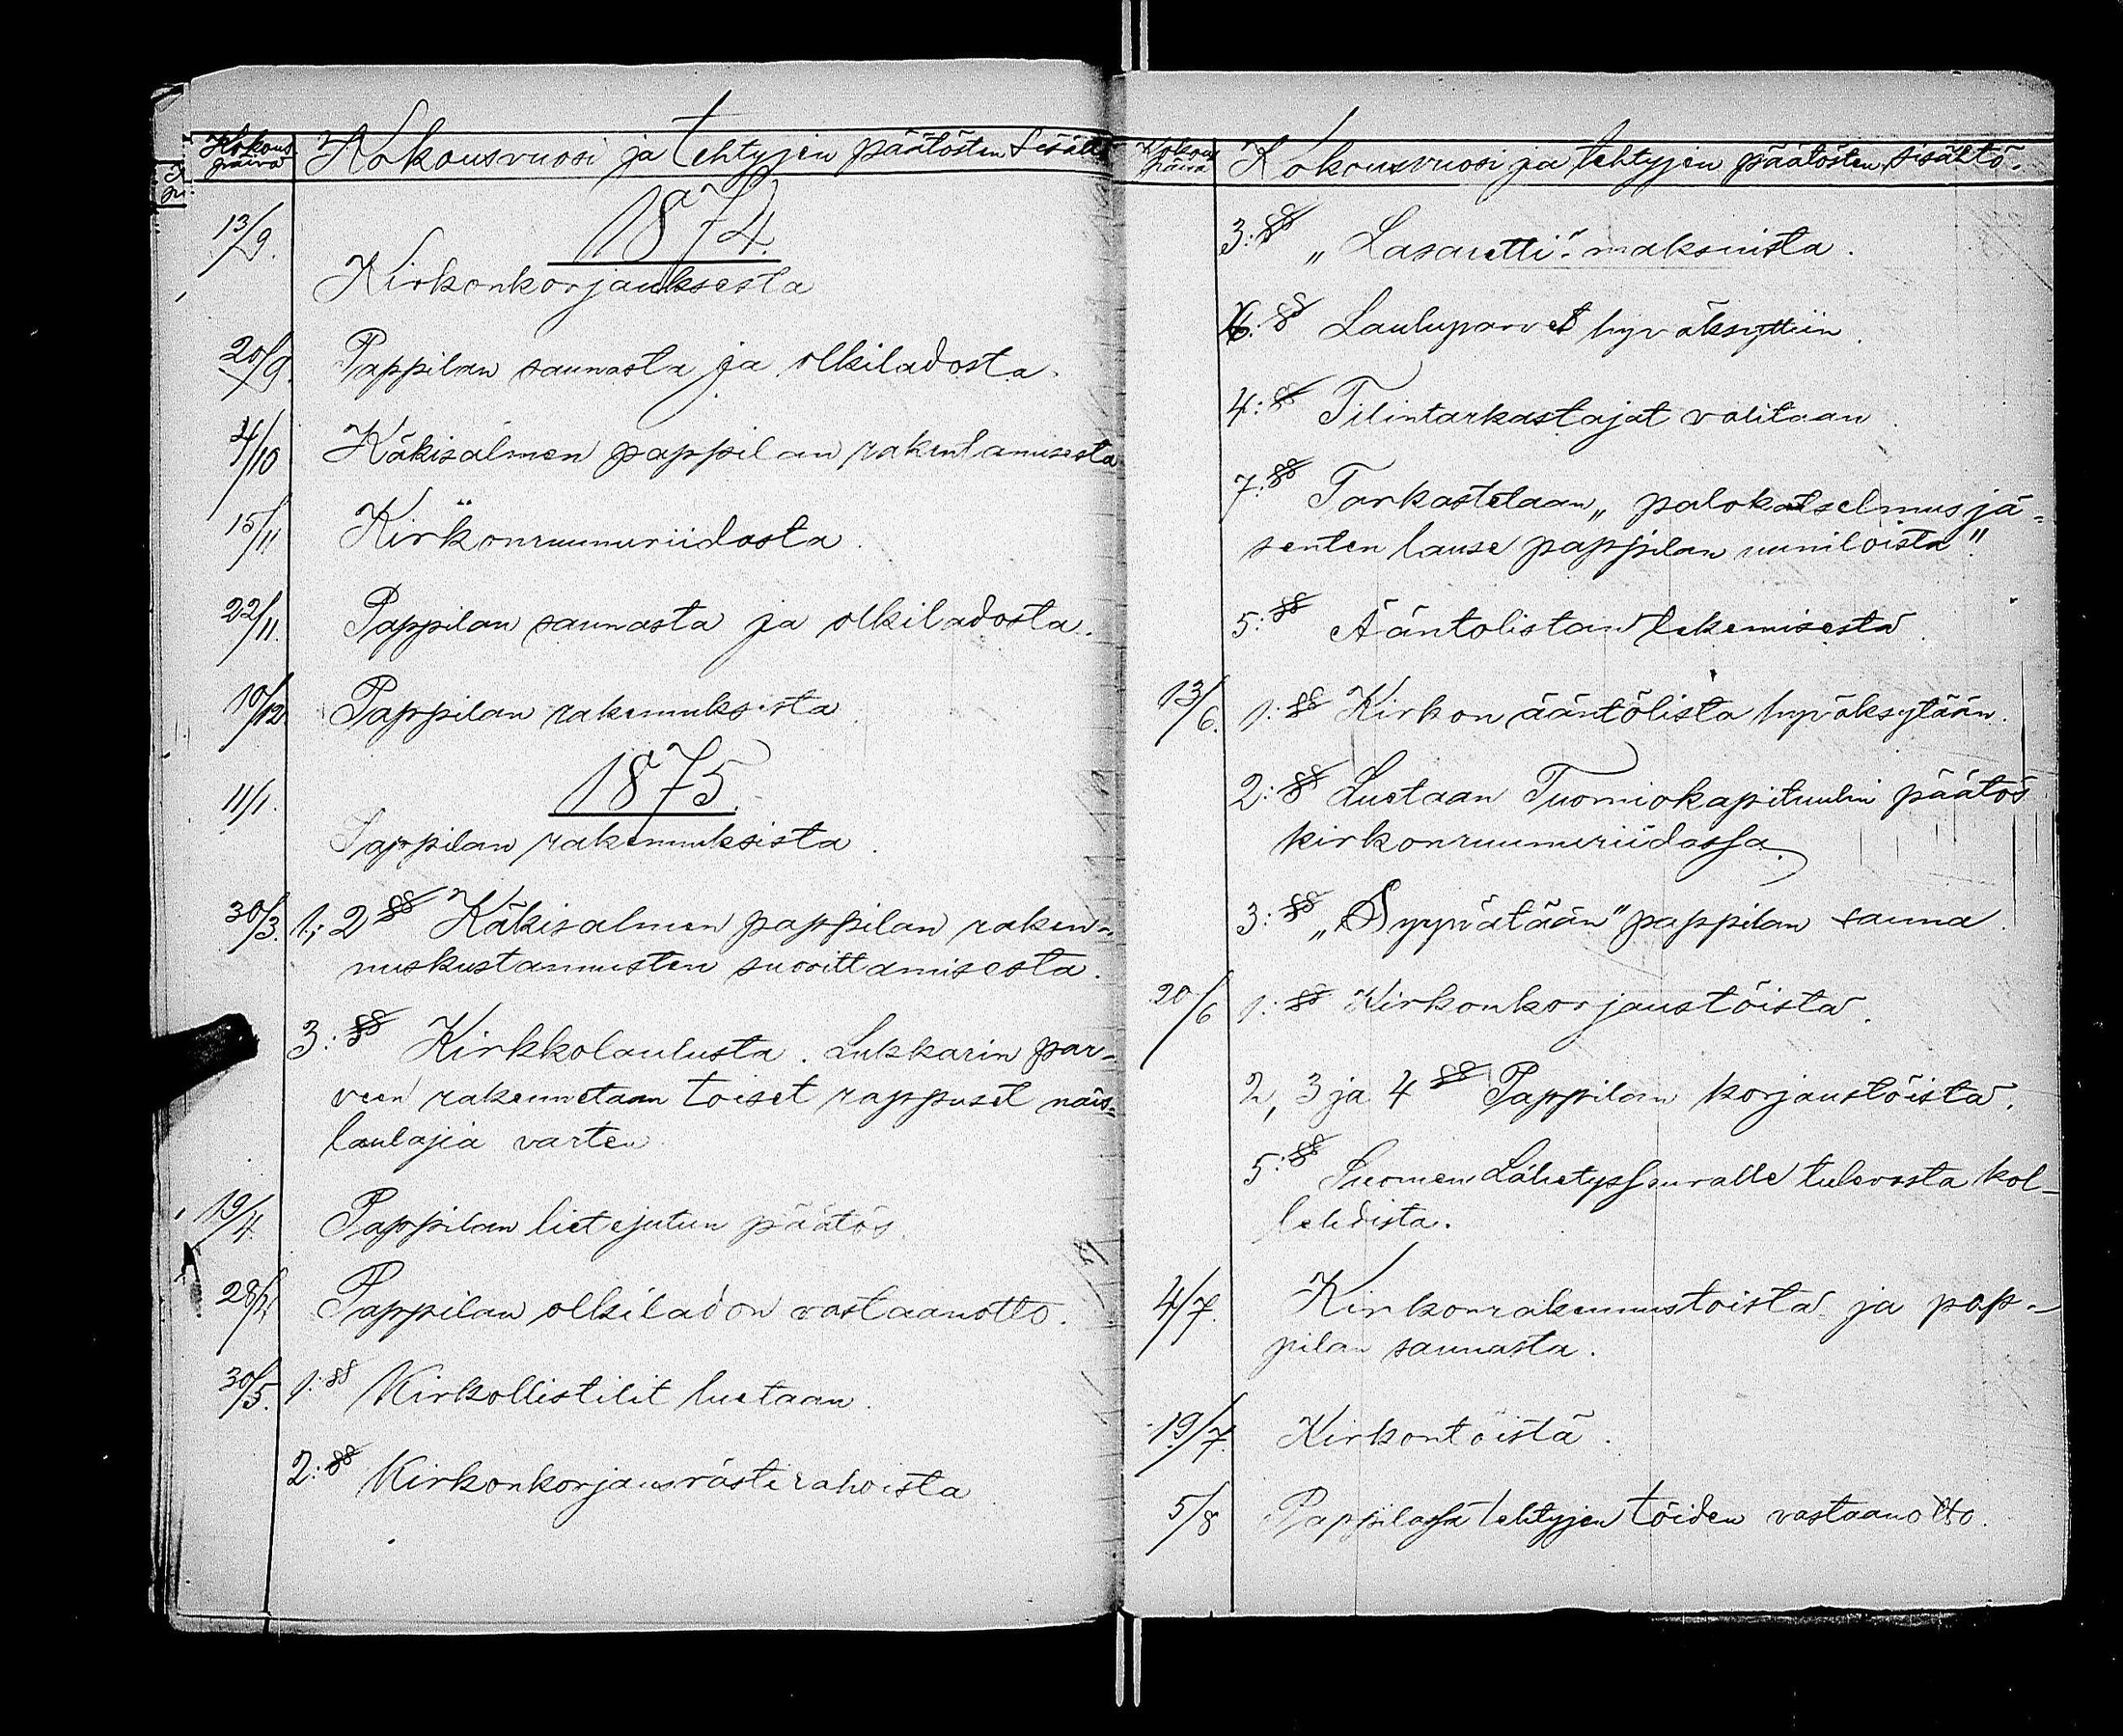 Kokous
päivä
Kokousvuosi ja tehtyjen päätösten sisältö
1874.
13/9.
Kirkonkorjauksesta
20/9.
Pappilan saunasta ja olkiladosta.
4/10
Käkisalmen pappilan rakentamisesta
15/11
Kirkonruunuriidasta.
22/11.
Pappilan saunasta ja olkiladosta.
10/12
Pappilan rakennuksista.
1875.
11/1.
Pappilan rakennuksista.
30/3. 1; 2 §§ Käkisalmen pappilan raken-
nuskustannusten suorittamisesta.
3: §§ Kirkkolaulusta. Lukkarin par-
veen rakennetaan toiset rappuset näis-
laulajia varten.
19/4.
Pappilan lietejutun päätös.
28/4
Pappilan olkiladon vastaanotto.
30/5. 1: §§ Kirkollistilit luetaan.
2: §§ Kirkonkorjausrästirahoista.
Kokous
päivä
Kokousvuosi ja tehtyjen päätösten sisältö.
3: §§ „Lasaretti" maksuista.
6: § Lauluparvet hyväksyttiin.
4: §§ Tilintarkastajat valitaan.
7: §§ Tarkastetaan „palokatselmusjä-
senten lause pappilan uuniloista".
5: §§ Ääntolistan tekemisestä.
13/6. 1: §§ Kirkon ääntölista hyväksytään.
2: §§ Luetaan Tuomiokapituulin päätös
kirkonruunuriidassa.
3: §§ „Syyvätään" pappilan sauna.
20/6 1: §§ Kirkonkorjaustöistä.
2, 3 ja 4 §§ Pappilan korjaustöistä.
5: §§ Suomen Lähetysseuralle tulevasta kol-
lehdista.
4/7.
Kirkonrakennustoista ja pap-
pilan saunasta.
19/7.
Kirkontöistä.
5/8
Pappilassa tehtyjen töiden vastaanotto.